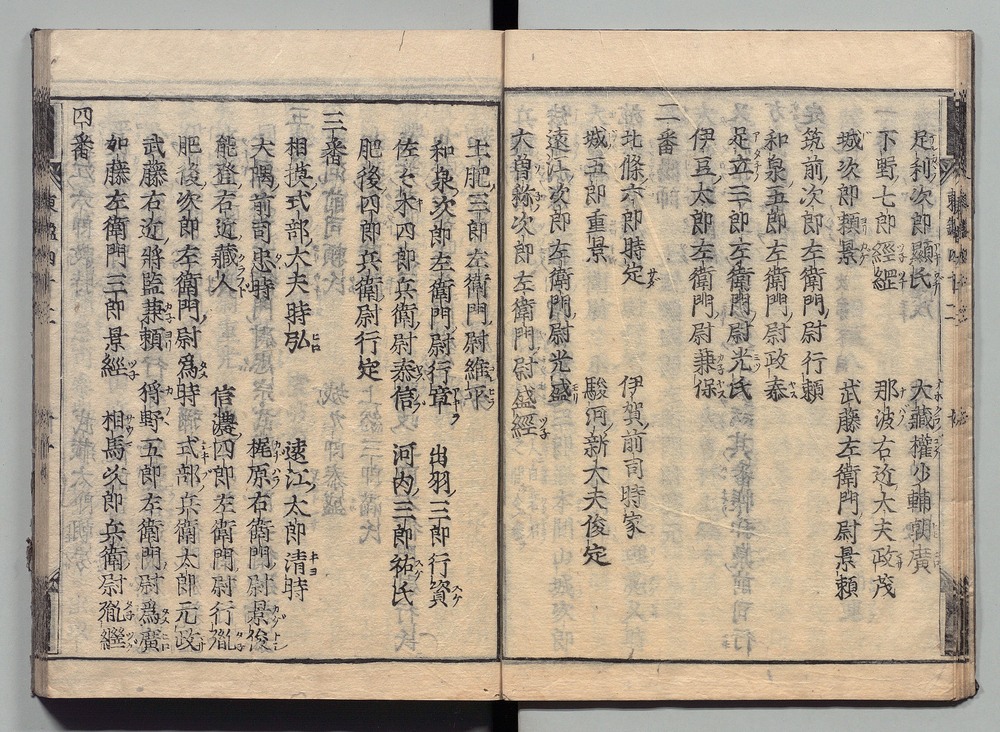 足利次郎顯氏　大藏權少輔朝廣
下野七郎經綱　那波右近大夫政茂
城次郎頼景　武藤左衛門尉景頼
筑前次郎左衛門尉行頼
和泉五郎左衛門尉政泰
足立三郎左衛門尉光氏
伊豆太郎左衛門尉兼保
二番
北條六郎時定　伊賀前司時家
城五郎重景　駿河新大夫俊定
遠江次郎左衛門尉光盛
大曽祢次郎左衛門尉盛經
土肥三郎左衛門尉維平
和泉次郎左衛門尉行章　出羽三郎行資
佐々木四郎兵衛尉泰信　河内三郎祐氏
肥後四郎兵衛尉行定
三番
相摸式部大夫時弘　遠江太郎清時
大隅前司忠時　梶原右衛門尉景俊
能登右近藏人　信濃四郎左衛門尉行胤
肥後次郎左衛門尉爲時　式部兵衛太郎元政
武藤右近將監兼頼　狩野五郎左衛門尉爲廣
加藤左衛門三郎景經　相馬次郎兵衛尉胤繼
四番